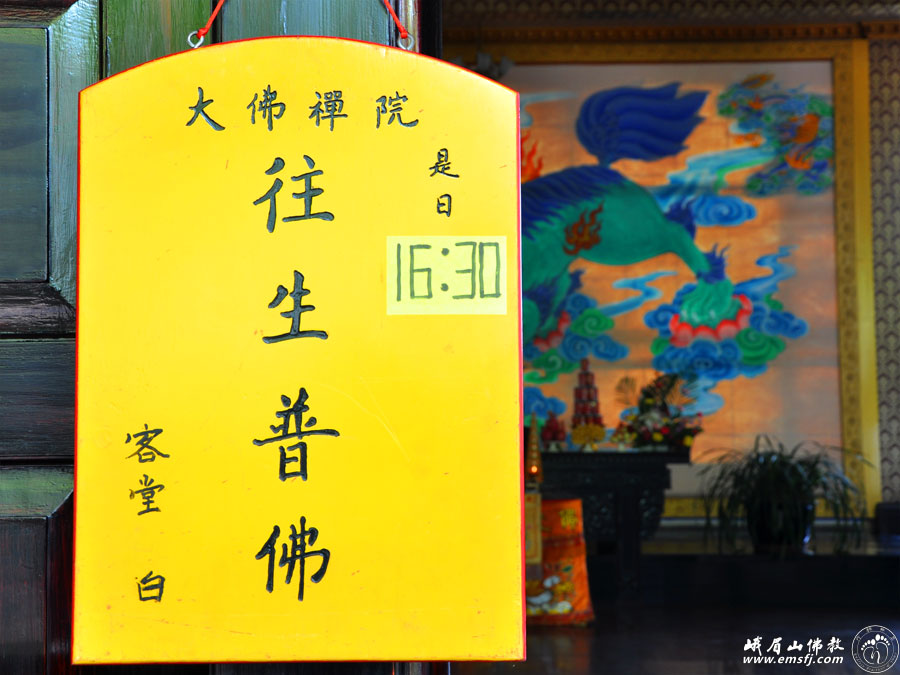 大佛禪院
是日
16:30
往生普佛
客堂 白
峨眉山佛教
www.emsfj.com